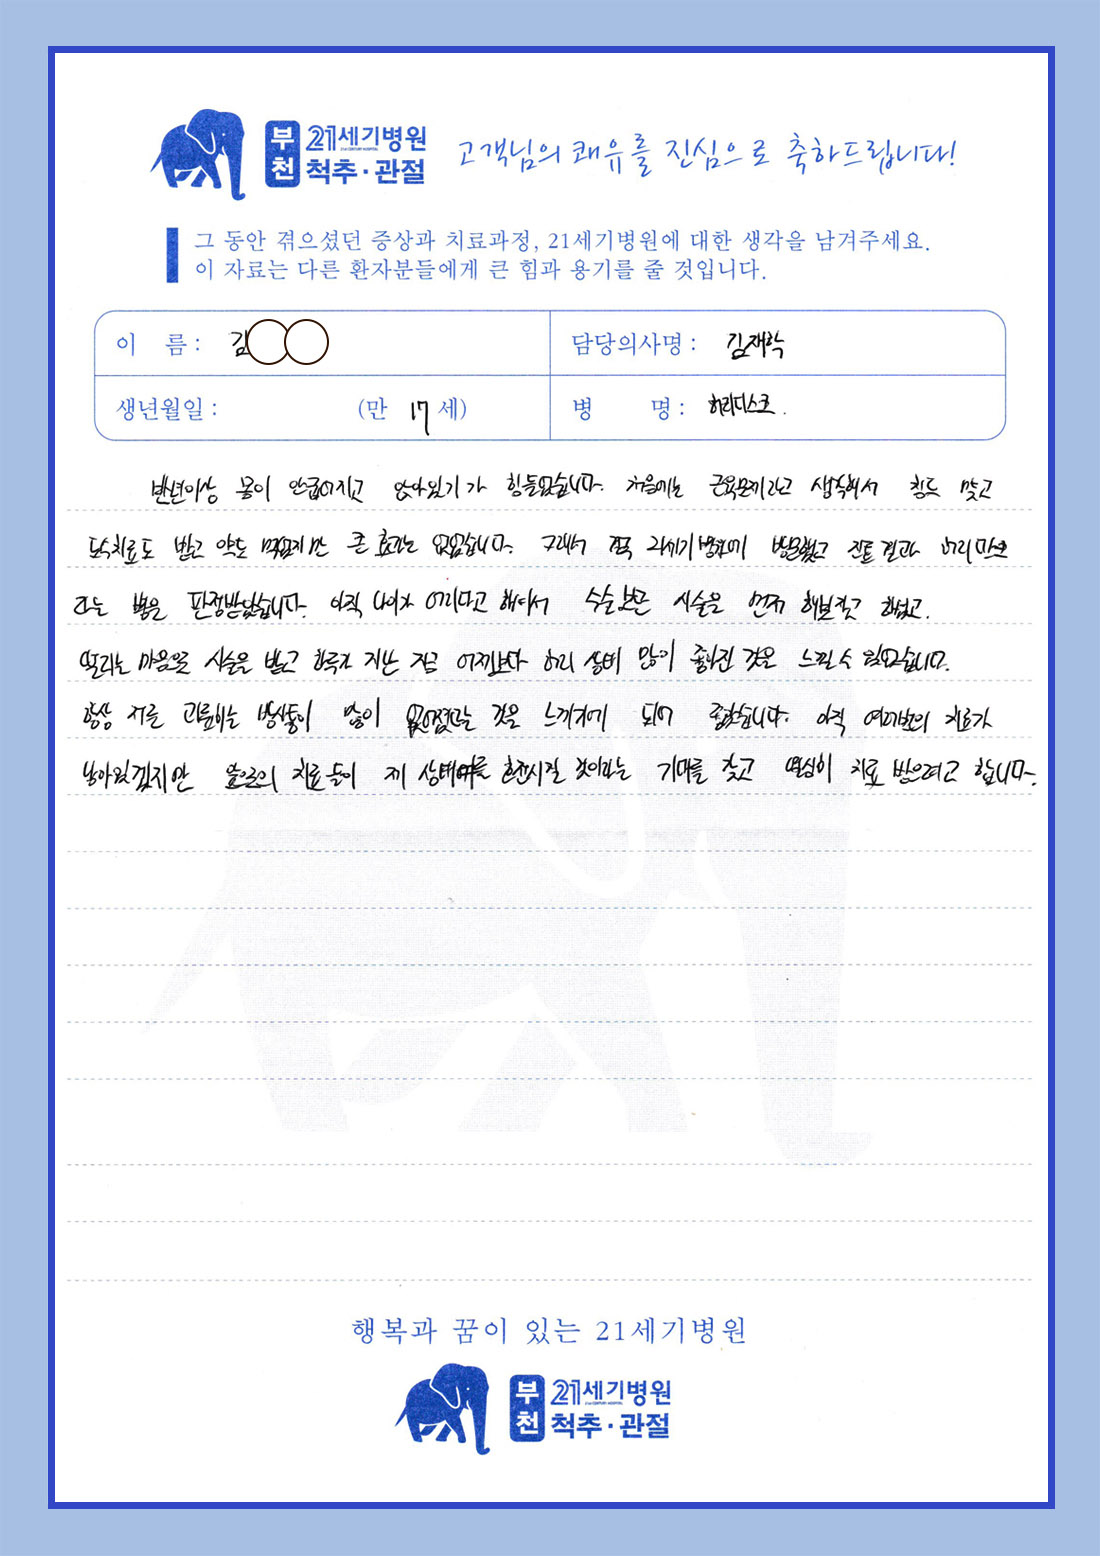 부천 21세기병원 척추·관절 고객님의 쾌유를 진심으로 축하드립니다!
21ST CENTURY HOSPITAL
그 동안 겪으셨던 증상과 치료과정, 21세기병원에 대한 생각을 남겨주세요.
이 자료는 다른 환자분들에게 큰 힘과 용기를 줄 것입니다.
이 름 : 김
담당의사명 : 김재학
생년월일 : (만 17 세)
병 명 : 허리디스크.
반년이상 몸이 안굽어지고 앉아있기가 힘들었습니다. 처음에는 근육문제라고 생각해서 침도 맞고
도수치료도 받고 약도 먹었지만 큰 효과는 없었습니다. 그래서 결국 21세기병원에 방문했고 진료결과 허리디스크
라는 병을 판정받았습니다. 아직 나이가 어리다고 하셔서 수술보단 시술을 먼저 해보자고 하셨고.
떨리는 마음으로 시술을 받고 하루가 지난 지금 어제보다 허리 상태 많이 좋아진 것을 느낄수 있었습니다.
항상 저를 괴롭히는 방사통이 많이 없어졌다는 것을 느끼게 되어 좋았습니다. 아직 여러번의 치료가
남아있겠지만 앞으로의 치료들이 제 상태를 호전시킬 것이라는 기대를 갖고 열심히 치료 받으려고 합니다.
행복과 꿈이 있는 21세기병원
부천 21세기병원 척추·관절
21ST CENTURY HOSPITAL